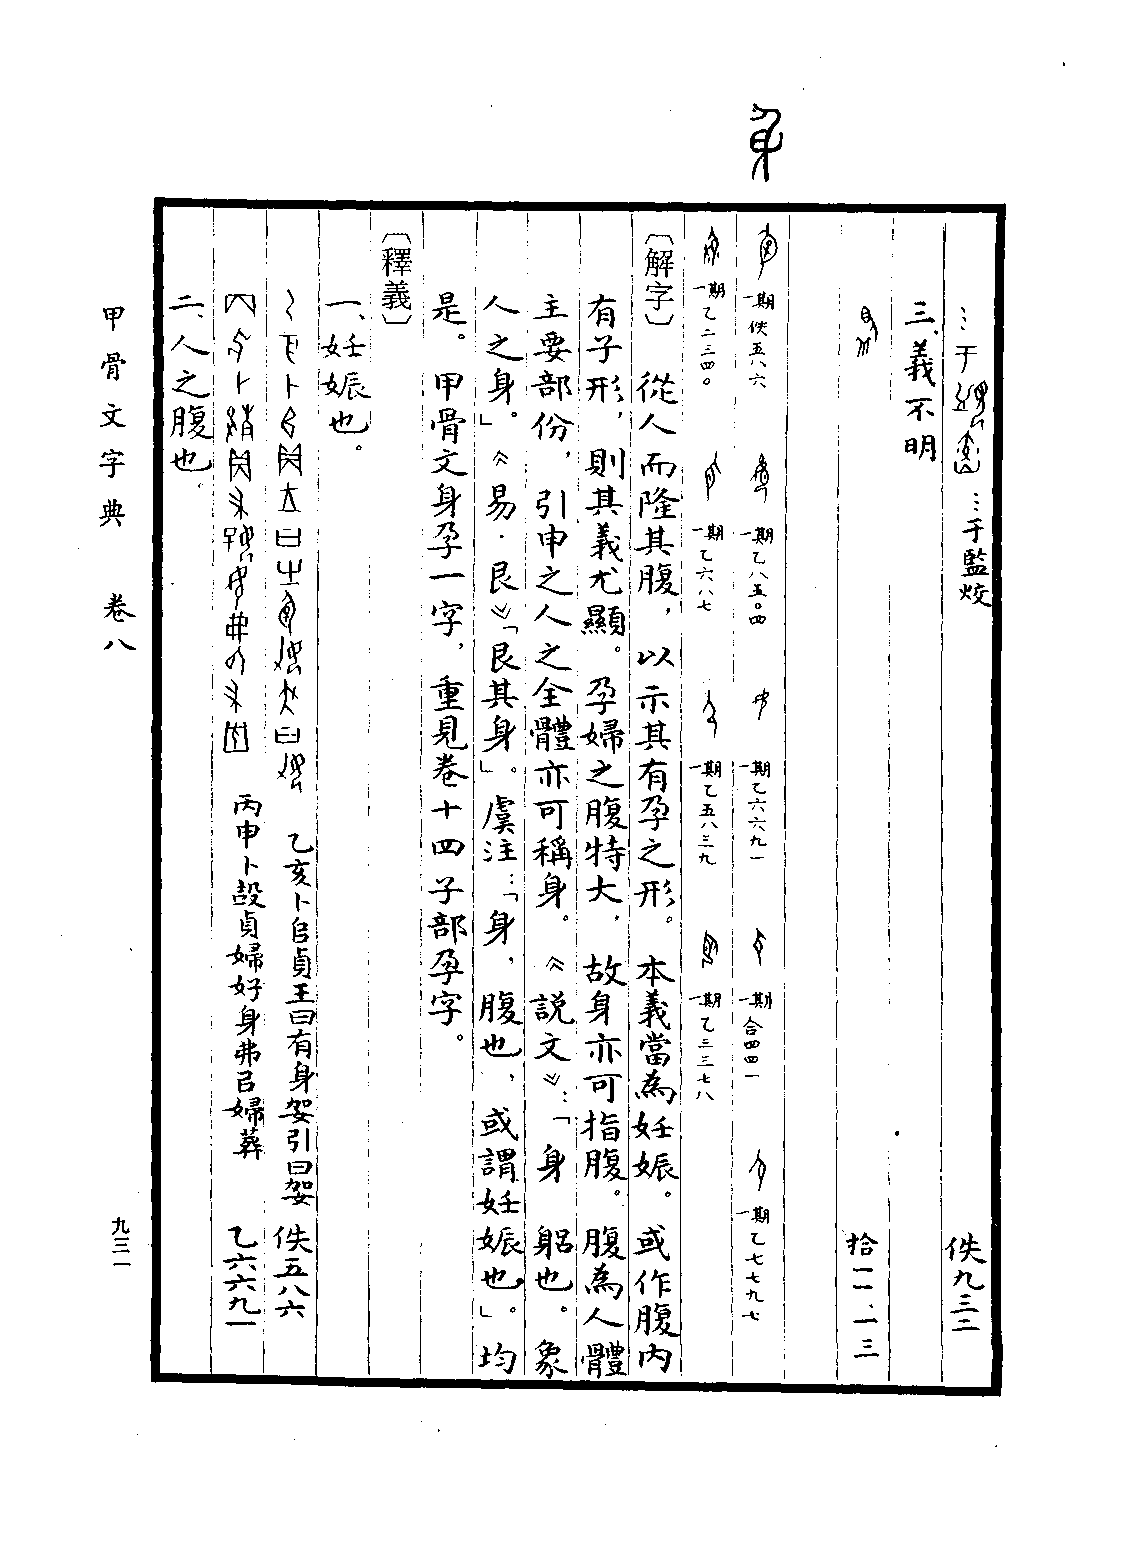 身
…于 …于監烄 佚九三二
三、義不明
拾一一、一三
一期佚五八六 一期乙八五〇四 一期乙六六九一 一期合四四一 一期乙七七九七
一期乙二三四〇 一期乙六八七 一期乙五八三九 一期乙三三七八
〔解字〕 從人而隆其腹，以示其有孕之形。本義當為妊娠。或作腹內
有子形，則其義尤顯。孕婦之腹特大，故身亦可指腹。腹為人體
主要部份，引申之人之全體亦可稱身。《説文》：「身 躳也。象
人之身。」《易·艮》「艮其身」。虞注：「身，腹也，或謂妊娠也」。均
是。甲骨文身孕一字，重見卷十四子部孕字。
〔釋義〕
一、妊娠也。
乙亥卜𠂤貞王曰有身㚸引曰㚸 佚五八六
丙申卜㱿貞婦好身弗㠯婦葬 乙六六九一
二、人之腹也
甲骨文字典 卷八 九三一